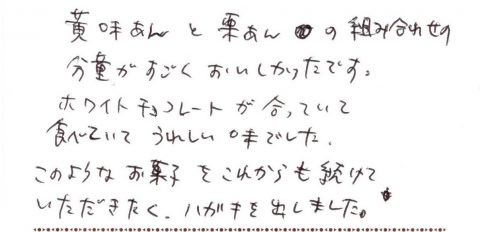 黄味あんと栗あんの組み合わせの
分量がすごくおいしかったです。
ホワイトチョコレートが合っていて
食べていてうれしい味でした.
このようなお菓子をこれからも続けて
いただきたく、ハガキを出しました。